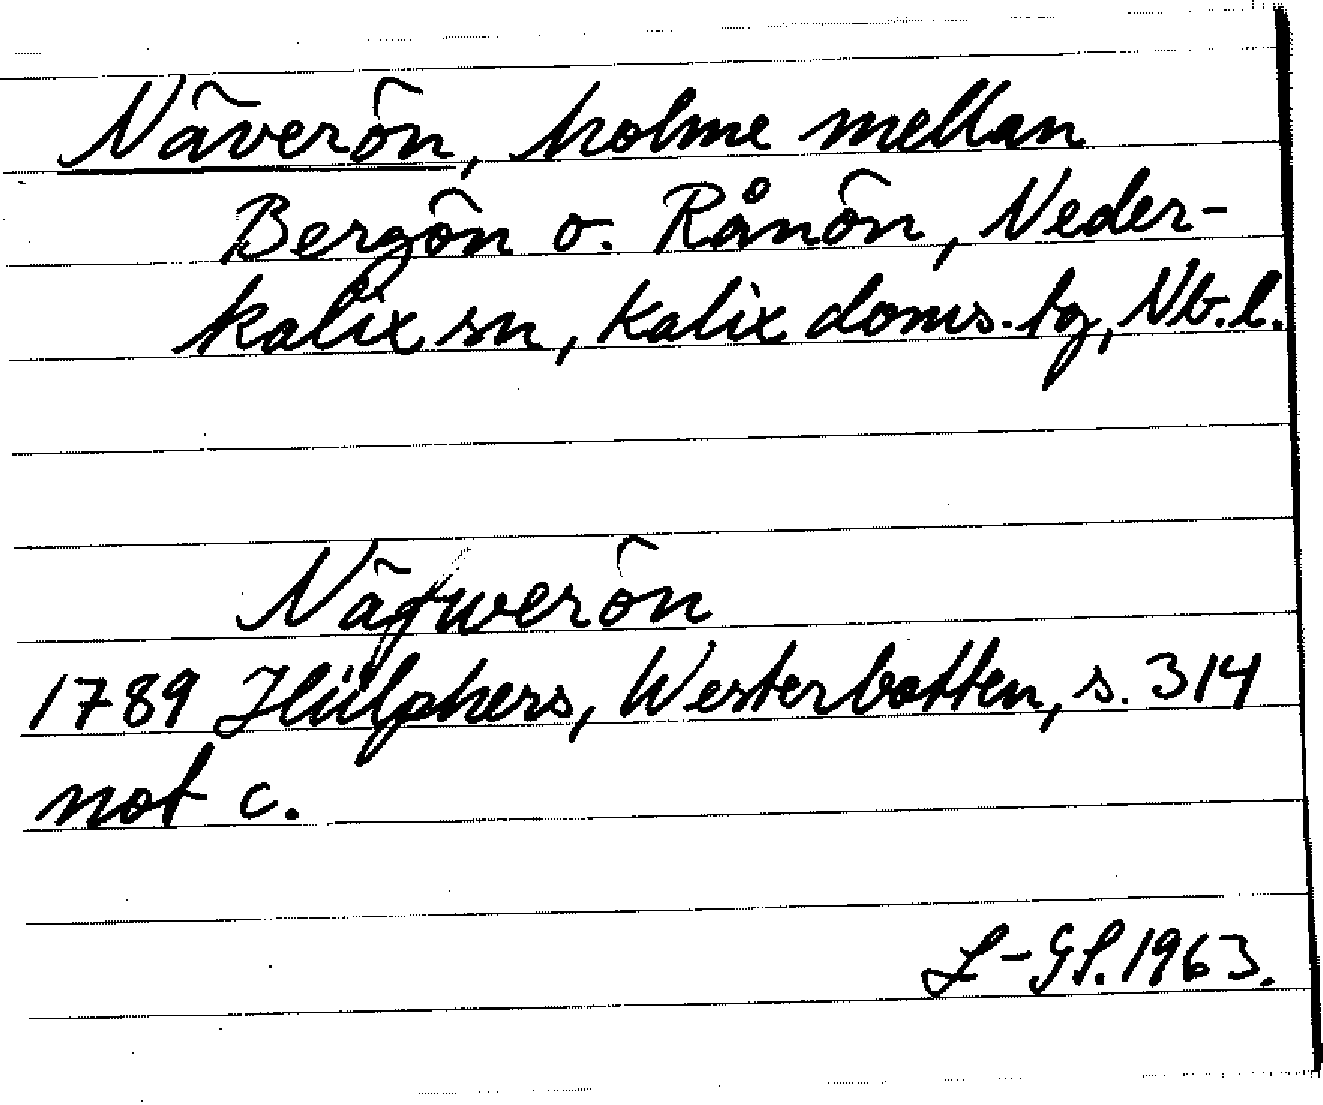 Näverön, holme mellan
Bergön o. Rånön, Neder-
kalix sn, Kalix doms. tg, Nb. l.
Näfwerön
1789 Hülphers, Westerbotten, s. 314
not c.
L-GL. 1963.